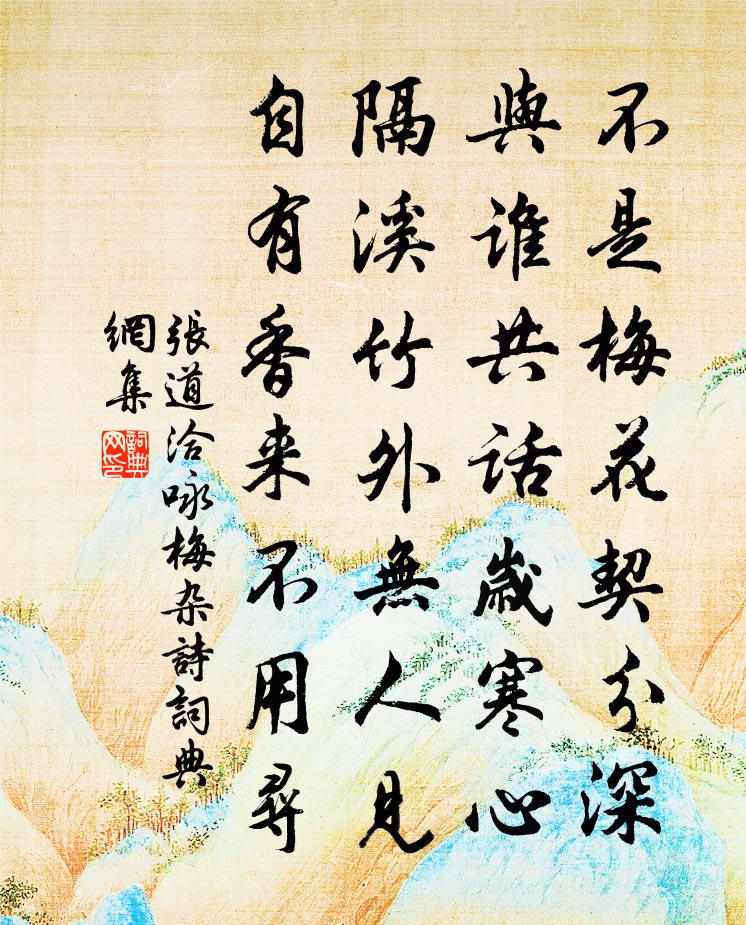 不是梅花契分深
與誰共話歲寒心
隔溪竹外無人見
自有香来不用尋
張道洽咏梅杂詩詞典
網集
詞典
网印